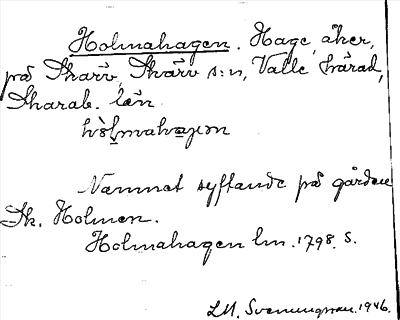 Holmahagen. Hage, åker,
på Skärv, Skärv s:n, Valle härad,
Skarab. län
Namnet syftande på gården
Sk. Holmen.
Holmahagen lm. 1798. S.
1946.